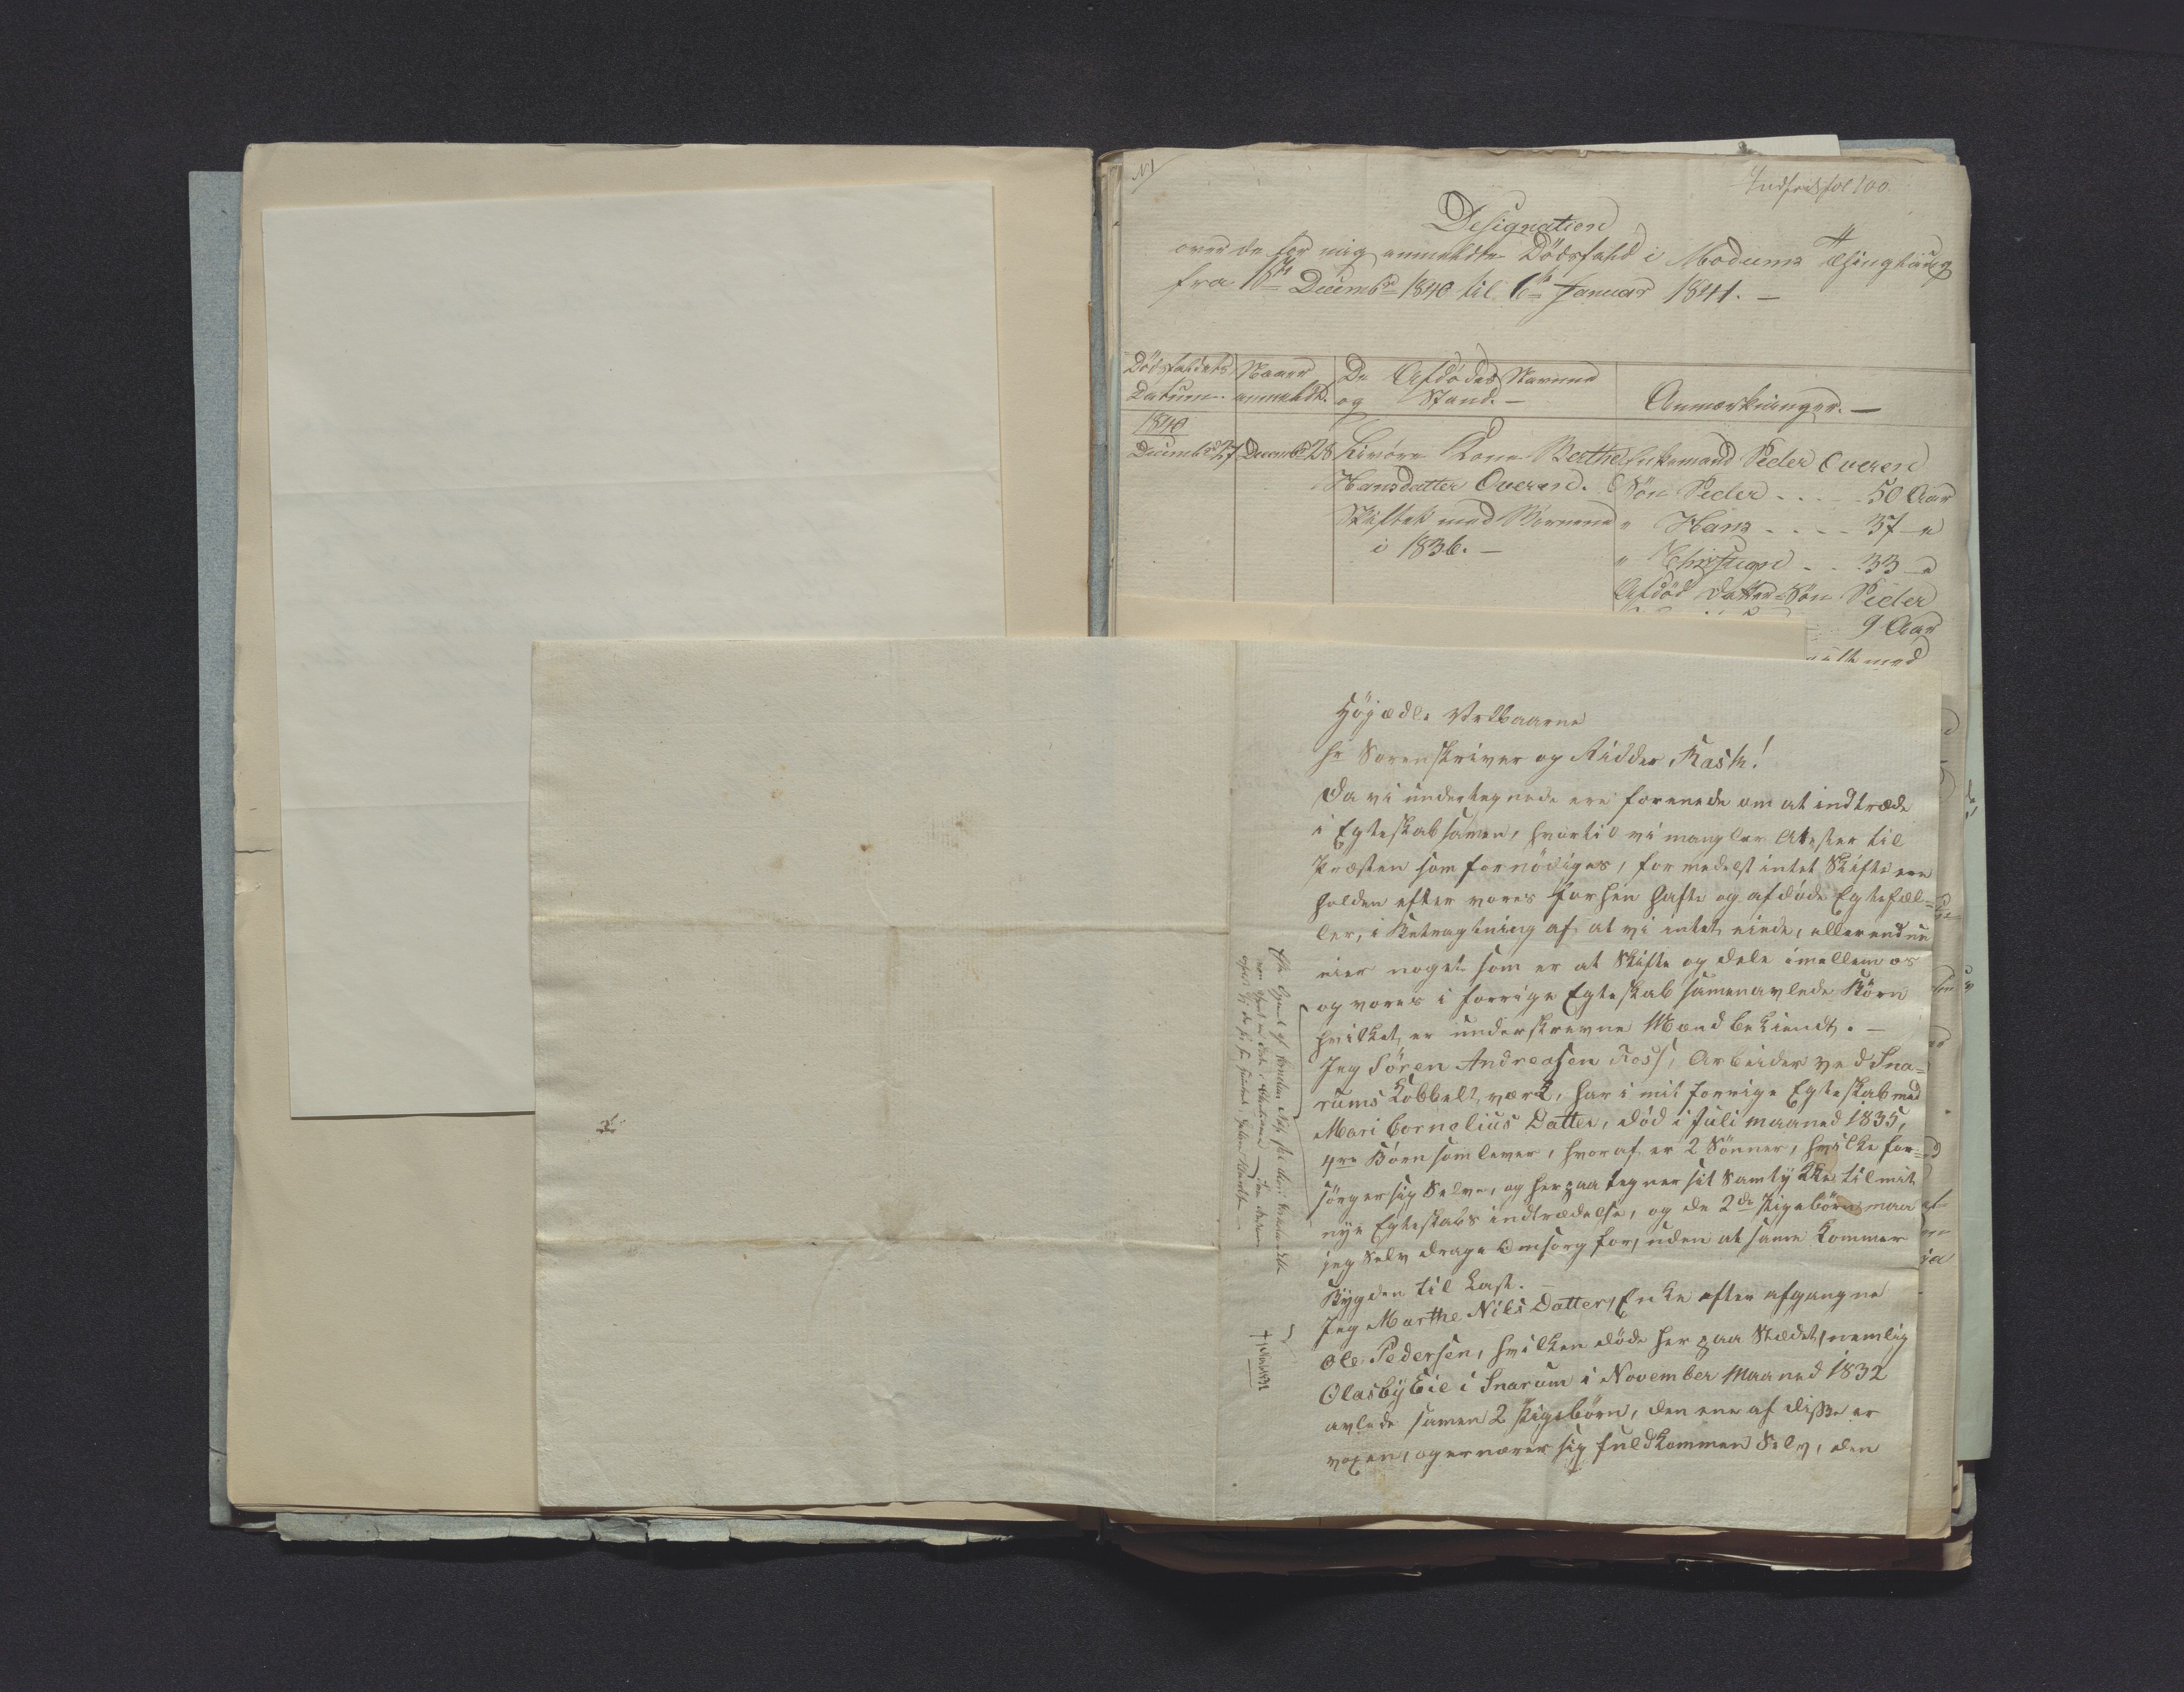 N 1
Indført fol 100.
Designation
over de for mig anmeldte Dödsfald i Modums Thinglaug
fra 1ste Decembr 1840 til 6te Januar 1841. —
Dödsfaldets Datum.
Naar anmeldt.
De Afdödes Navne og Stand. —
Anmærkninger. —
1840
Decembr 27 Decembr 28 Kone Berthe Enkemand Peder Overen
Hansdatter Overen. Sön Peder . . . . 50 Aar
Skiftet med Börnene " Hans . . . . 37 "
i 1836. — " Christian . . 33 "
Afdöd Datter-Sön Peder
9 Aar
med
Högædle Velbaarne
Hr Sorenskriver og Ridder Rasch!
Da vi undertegnede ere forenede om at indtræde
i Egteskab samen, hvortil vi mangler Atester til
Præsten som fornödiges, formedelst intet Skifte ere
holden efter vores forhen hafte og afdöde Egtefæl-
ler, i Betragtning af at vi intet eiede, eller endnu
eier noget som er at Skifte og dele imellem os
og vores i forrige Egteskab samenavlede Börn
hvilket er underskrevne Mænd bekiendt. —
Jeg Sören Andreasen Ross, Arbeider ved Sna-
rums Kobbelt værk, har i mit forrige Egteskab med
Mari Cornelius Datter, död i Juli maaned 1835,
4re Börn som lever, hvoraf er 2 Sönner, hvilke for-
sörger sig Selv, og herpaa tegner sit Samtykke til mit
nye Egteskabs indtrædelse, og de 2de Pigebörn maa
jeg Selv drage Omsorg for, uden at same kommer
Bygden til Last. —
Jeg Marthe Nils Datter, Enke efter afgangne
Ole Pedersen, hvilken döde her paa Stædet, nemlig
Olasbÿ Eie i Snarum i November Maaned 1832
avlede samen 2 Pigebörn, den ene af disse er
voxen, og ernærer sig fuldkommen Selv, den